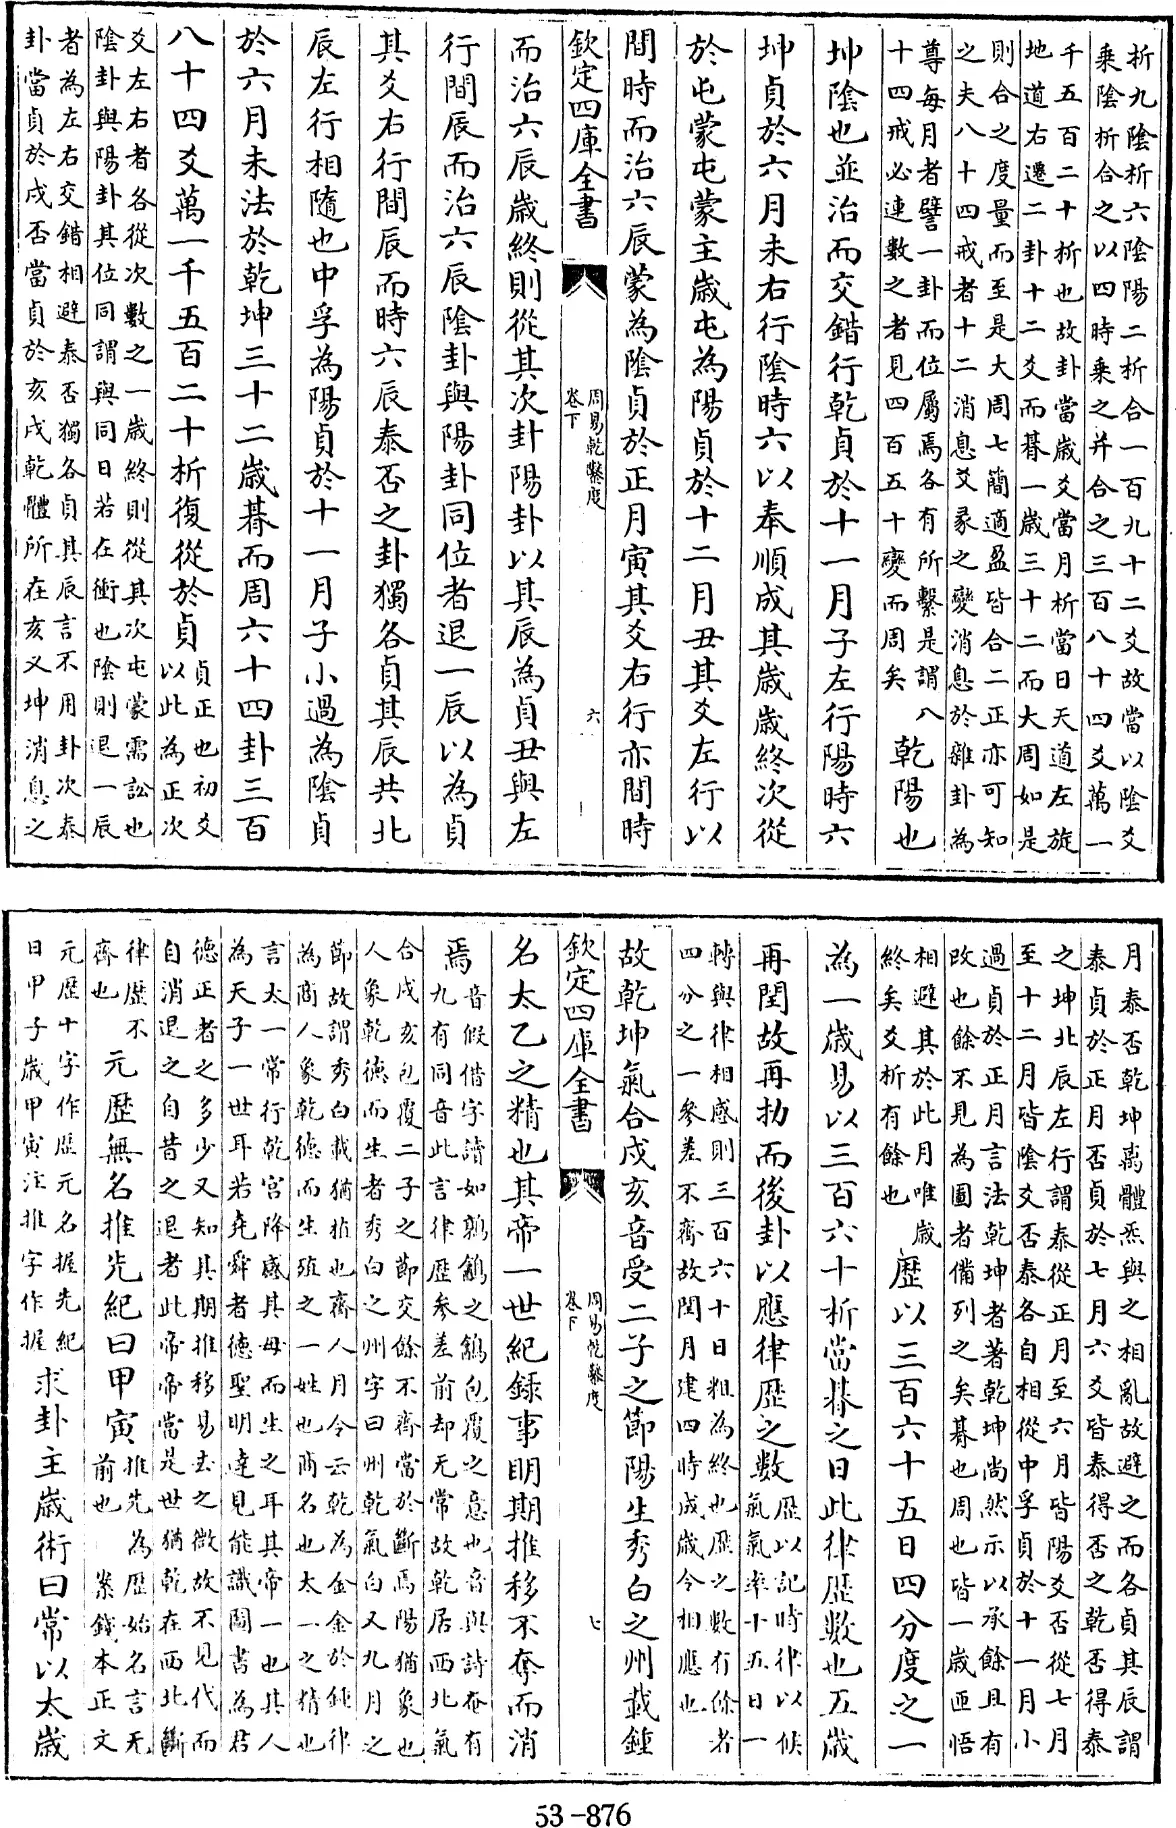 析九陰析六陰陽二析合一百九十二爻故當以陰爻
乘陰析合之以四時乘之并合之三百八十四爻萬一
千五百二十析也故卦當歲爻當月析當日天道左旋
地道右遷二卦十二爻而朞一歲三十二而大周如是
則合之度量而至是大周七簡適盈皆合二正亦可知
之夫八十四戒者十二消息爻彖之變消息於雜卦為
尊每月者譬一卦而位屬焉各有所繫是謂
十四戒必連數之者見四百五十變而周矣
八乾陽也
坤陰也並治而交錯行乾貞於十一月子左行陽時六
坤貞於六月未右行陰時六以奉順成其歲歲終次從
於屯蒙屯蒙主歲屯為陽貞於十二月丑其爻左行以
間時而治六辰蒙為陰貞於正月寅其爻右行亦間時
欽定四庫全書
周易乾鑿度
卷下
六
而治六辰歲終則從其次卦陽卦以其辰為貞丑與左
行間辰而治六辰陰卦與陽卦同位者退一辰以為貞
其爻右行間辰而時六辰泰否之卦獨各貞其辰共北
辰左行相隨也中孚為陽貞於十一月子小過為陰貞
於六月未法於乾坤三十二歲朞而周六十四卦三百
八十四爻萬一千五百二十析復從於貞
貞正也初爻
以此為正次
爻左右者各從次數之一歲終則從其次屯蒙需訟也
陰卦與陽卦其位同謂與同日若在衝也陰則退一辰
者為左右交錯相避泰否獨各貞其辰言不用卦次泰
卦當貞於戌否當貞於亥戌乾體所在亥又坤消息之
月泰否乾坤离體炁與之相亂故避之而各貞其辰謂
泰貞於正月否貞於七月六爻皆泰得否之乾否得泰
之坤北辰左行謂泰從正月至六月皆陽爻否從七月
至十二月皆陰爻否泰各自相從中孚貞於十一月小
過貞於正月言法乾坤者著乾坤尚然示以承餘且有
改也餘不見為圖者備列之矣朞也周也皆一歲匝悟
相避其於此月唯歲
終矣爻析有餘也
歷以三百六十五日四分度之一
為一歲易以三百六十析當朞之日此律歷數也五歲
再閏故再扐而後卦以應律歷之數
歷以記時律以候
氣氣率十五日一
轉與律相感則三百六十日粗為終也歷之數有餘者
四分之一參差不齊故閏月建四時成歲今相應也
故乾坤氣合戌亥音受二子之節陽生秀白之州載鍾
欽定四庫全書
周易乾鑿度
卷下
七
名太乙之精也其帝一世紀録事明期推移不奪而消
焉
音假借字讀如鶉鶴之鶴包覆之意也音與詩奄有
九有同音此言律歷參差前却无常故乾居西北氣
合戌亥包覆二子之節交餘不齊當於斷焉陽猶象也
人象乾德而生者秀白之州字曰州乾氣白又九月之
節故謂秀白載猶植也齋人月令云乾為金金於鍾律
為商人象乾德而生殖之一姓也商名也太一之精也
言太一常行乾宮降感其母而生之耳其帝一也其人
為天子一世耳若尭舜者德聖明達見能識圖書為君
德正者之多少又知其期推移易去之微故不見代而
自消退之自昔之退者此帝帝當是世猶乾在西北斷
律歷不
齊也
元歷無名推先紀曰甲寅
推先為歷始名言无
前也 案錢本正文
元歷十字作歷元名握先紀
日甲子歲甲寅注推字作握
求卦主歲術曰常以太歲
53-876